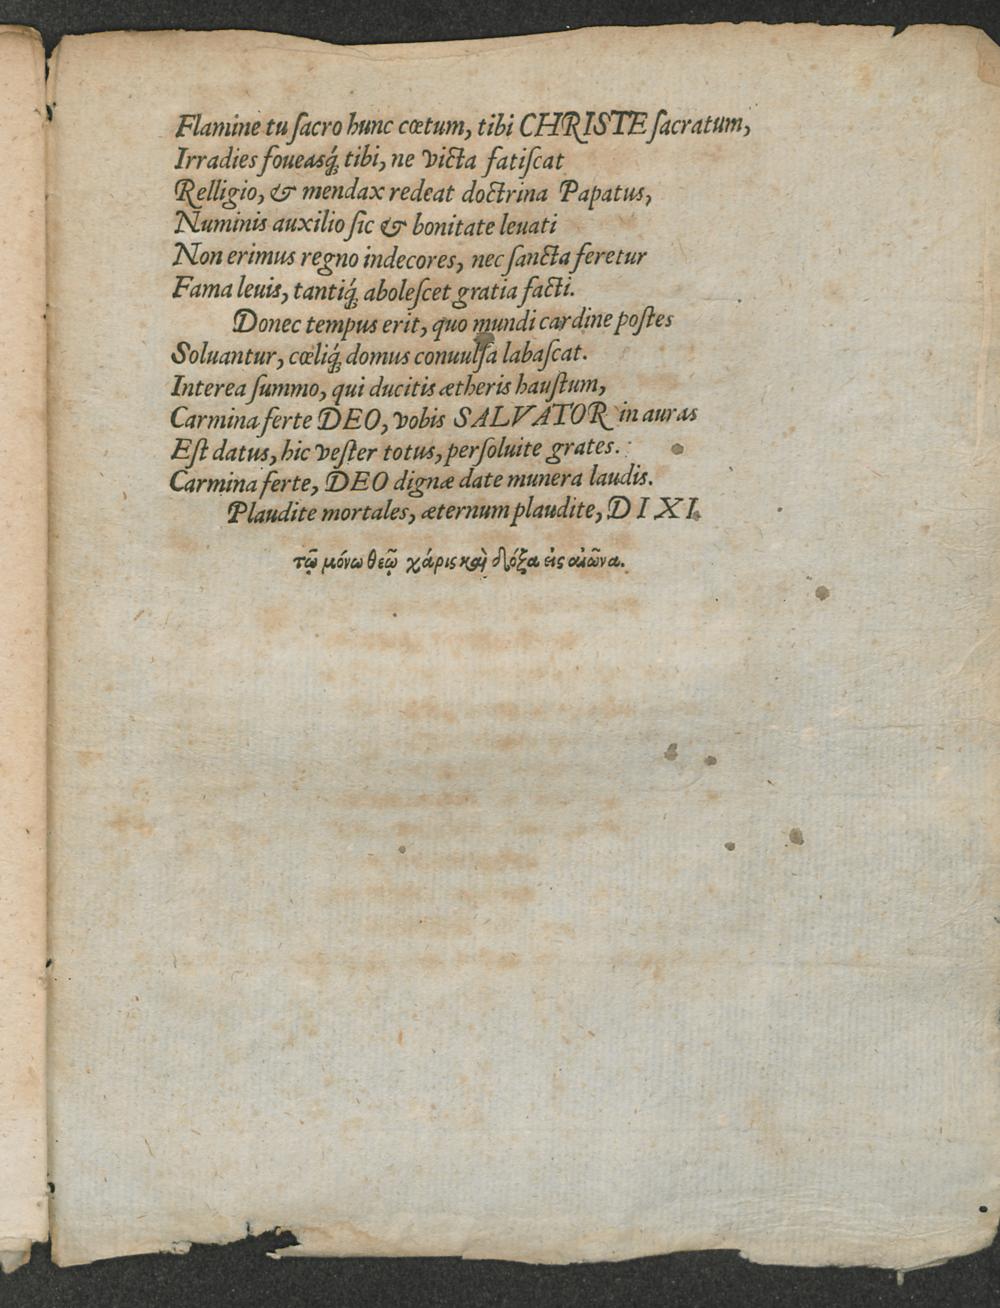 Flamine tu ſacro hunc cœtum, tibi CHRISTE ſacratum,
Irradies foueasq́; tibi, ne victa fatiſcat
Relligio, & mendax redeat doctrina Papatus,
Numinis auxilio ſic & bonitate leuati
Non erimus regno indecores, nec ſancta feretur
Fama leuis, tantiq́; aboleſcet gratia facti.
Donec tempus erit, quo mundi cardine poſtes
Soluantur, cœliq́; domus conuulſa labaſcat.
Interea ſummo, qui ducitis ætheris hauſtum,
Carmina ferte DEO, vobis SALVATOR in auras
Eſt datus, hic veſter totus, perſoluite grates.
Carmina ferte, DEO dignæ date munera laudis.
Plaudite mortales, æternum plaudite, DIXI.
τῷ μόνω θεῷ χάρις καὶ δόξα εἰς αἰῶνα.